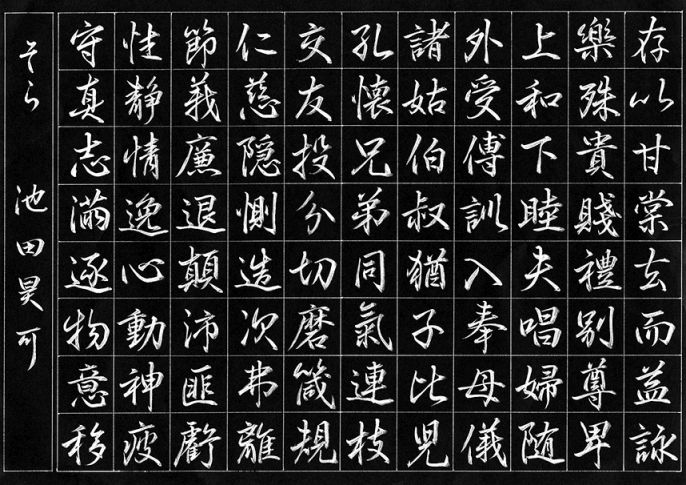 存以甘棠去而益詠
樂殊貴賤禮別尊卑
上和下睦夫唱婦随
外受傅訓入奉母儀
諸姑伯叔猶子比兒
孔懷兄弟同氣連枝
交友投分切磨箴規
仁慈隠惻造次弗離
節義廉退顛沛匪虧
性静情逸心動神疲
守真志滿逐物意移
そら 池田昊可